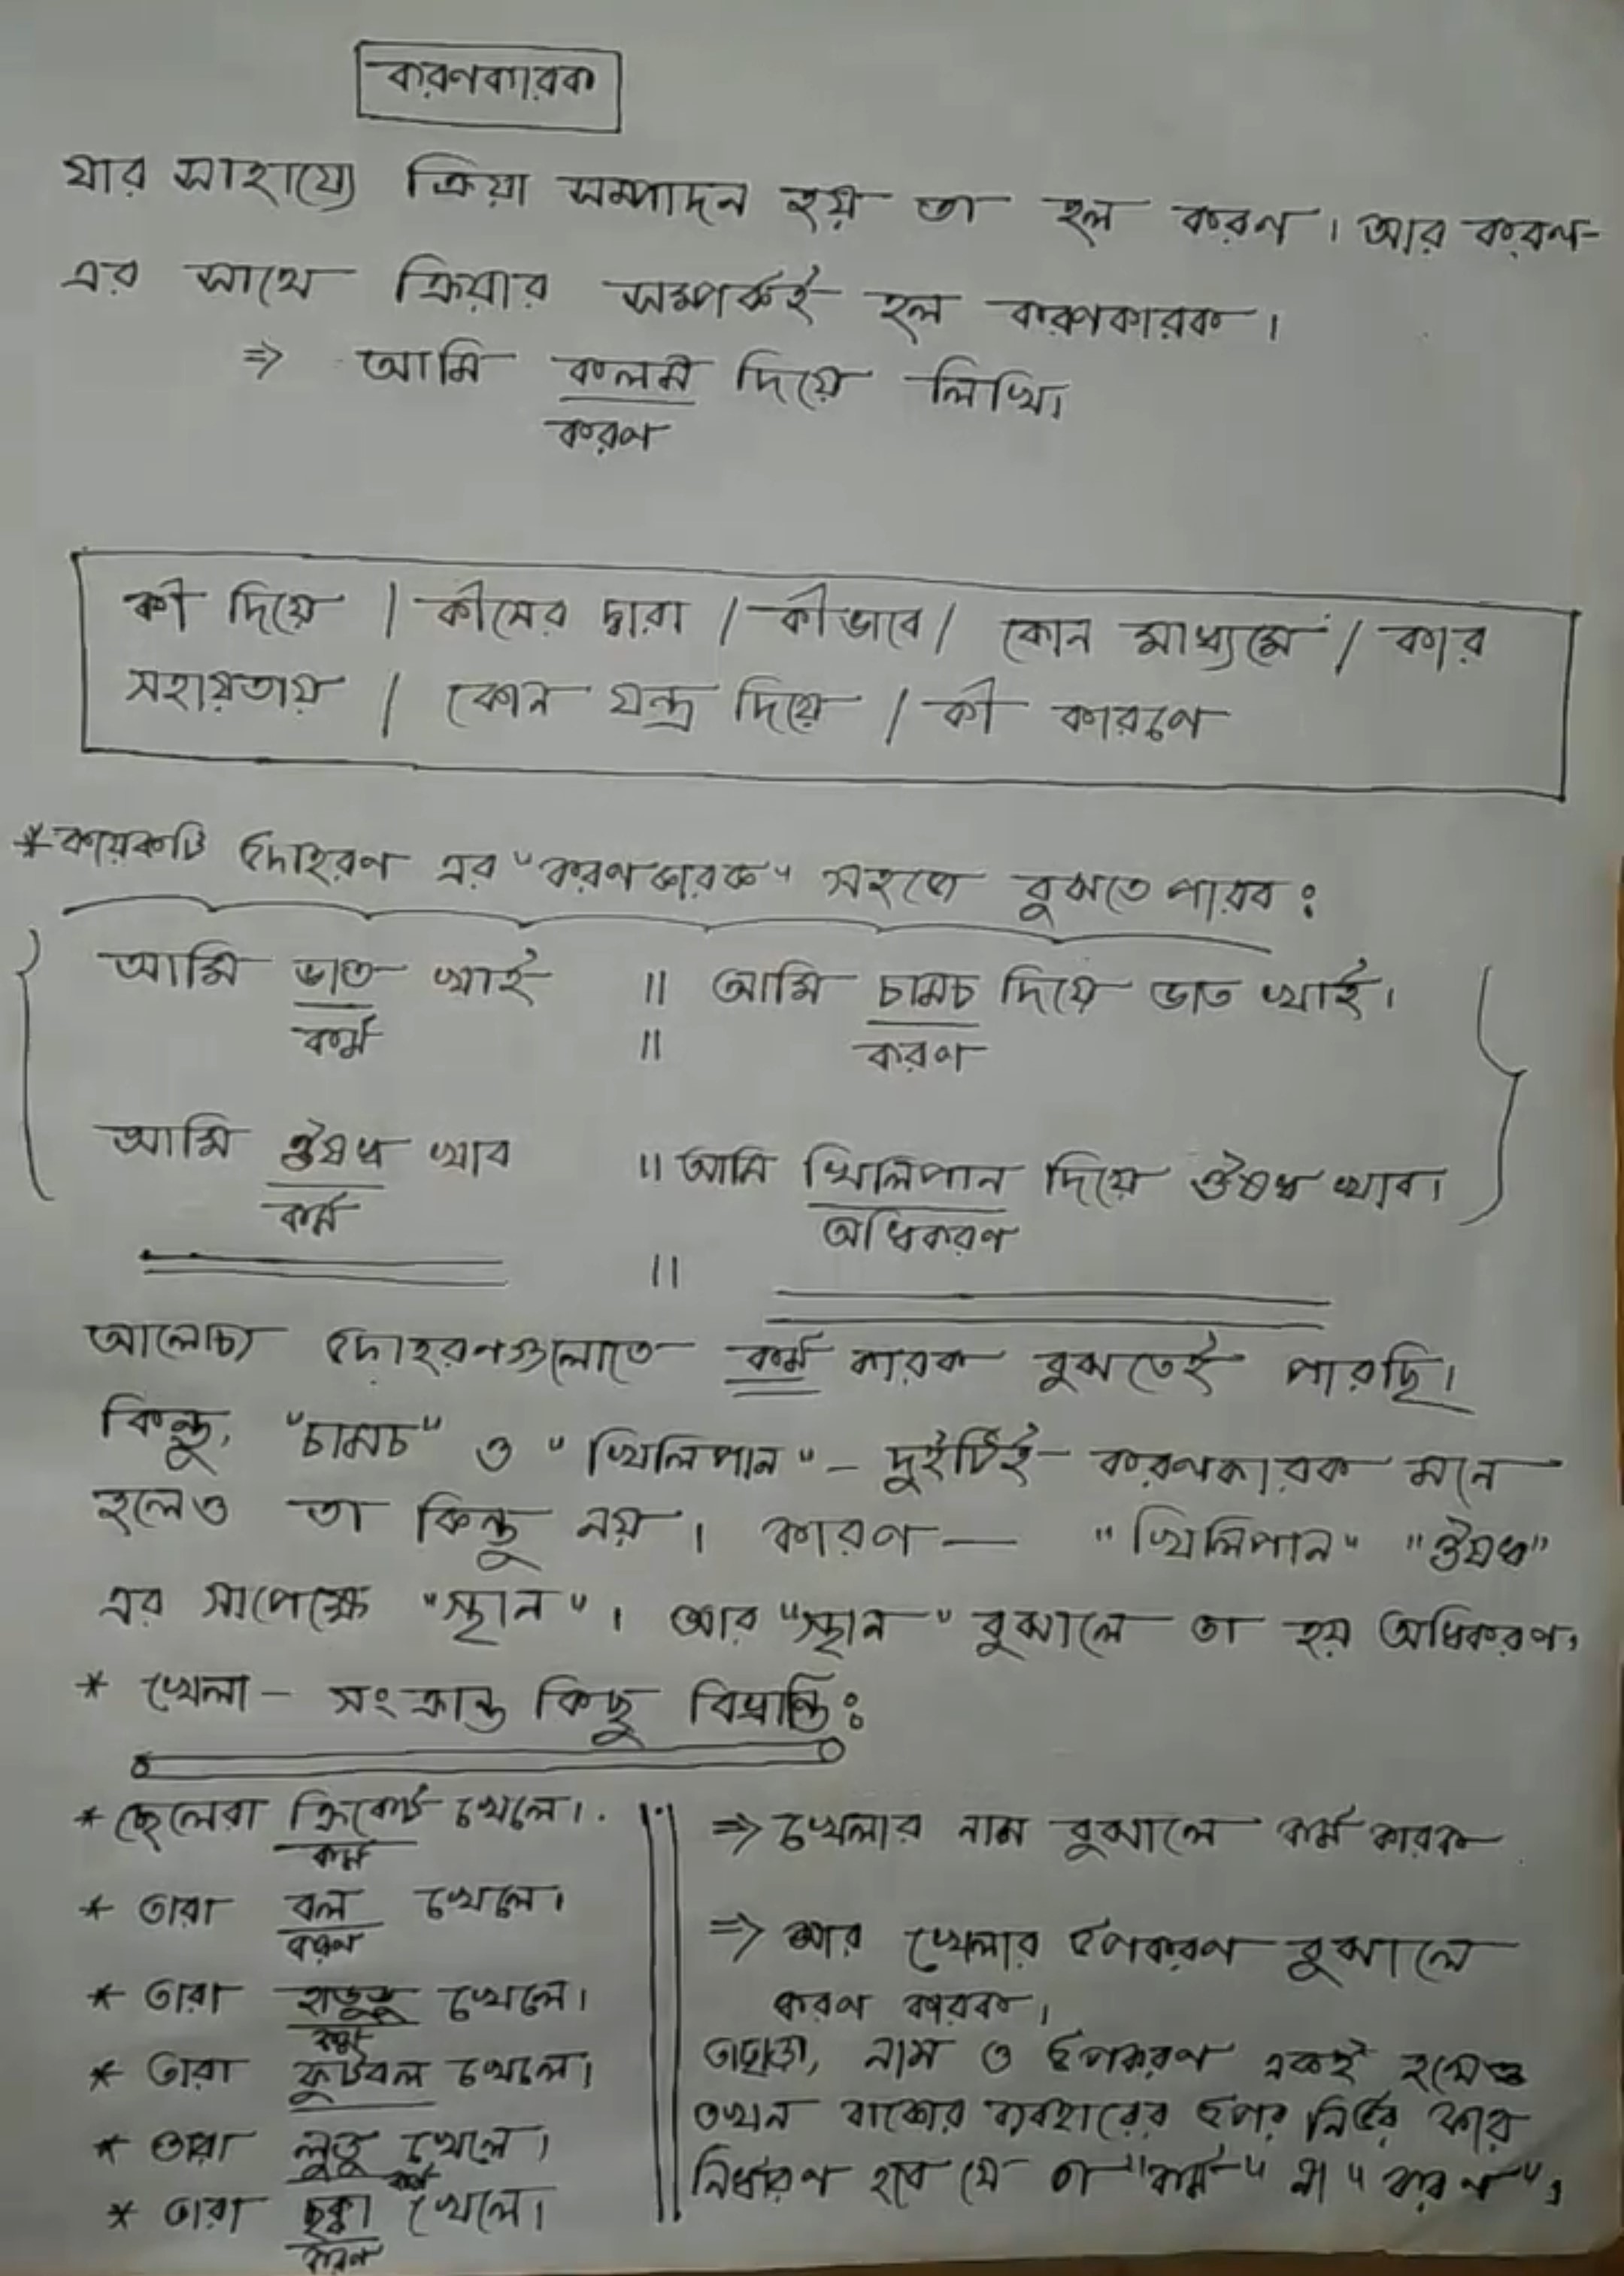 করণকারক
যার সাহায্যে ক্রিয়া সম্পাদন হয় তা হল করণ। আর করণ-
এর সাথে ক্রিয়ার সম্পর্কই হল করণকারক।
⇒ আমি কলম দিয়ে লিখি।
করণ
কী দিয়ে / কীসের দ্বারা / কীভাবে / কোন মাধ্যমে / কার
সহায়তায় / কোন যন্ত্র দিয়ে / কী কারণে
* কয়েকটি উদাহরণ এর "করণকারক" সহজে বুঝতে পারব :
আমি ভাত খাই || আমি চামচ দিয়ে ভাত খাই।
কর্ম || করণ
আমি ঔষধ খাব || আমি খিলিপান দিয়ে ঔষধ খাব।
কর্ম অধিকরণ
||
আলোচ্য উদাহরণগুলোতে কর্ম কারক বুঝতেই পারছি।
কিন্তু, "চামচ" ও "খিলিপান" - দুইটিই করণকারক মনে
হলেও তা কিন্তু নয়। কারণ — "খিলিপান" "ঔষধ"
এর সাপেক্ষে "স্থান"। আর "স্থান" বুঝালে তা হয় অধিকরণ।
* খেলা - সংক্রান্ত কিছু বিভ্রান্তি :
* ছেলেরা ক্রিকেট খেলে।
কর্ম
* তারা বল খেলে।
করণ
* তারা হাডুডু খেলে।
কর্ম
* তারা ফুটবল খেলে।
* তারা লুডু খেলে।
কর্ম
* তারা ছক্কা খেলে।
করণ
⇒ খেলার নাম বুঝালে কর্ম কারক
⇒ আর খেলার উপকরণ বুঝালে
করণ কারক।
তাছাড়া, নাম ও উপকরণ একই
তখন বাক্যের ব্যবহারের উপর নির্ভর করে
নির্ধারণ হবে যে তা "কর্ম" না "করণ"।